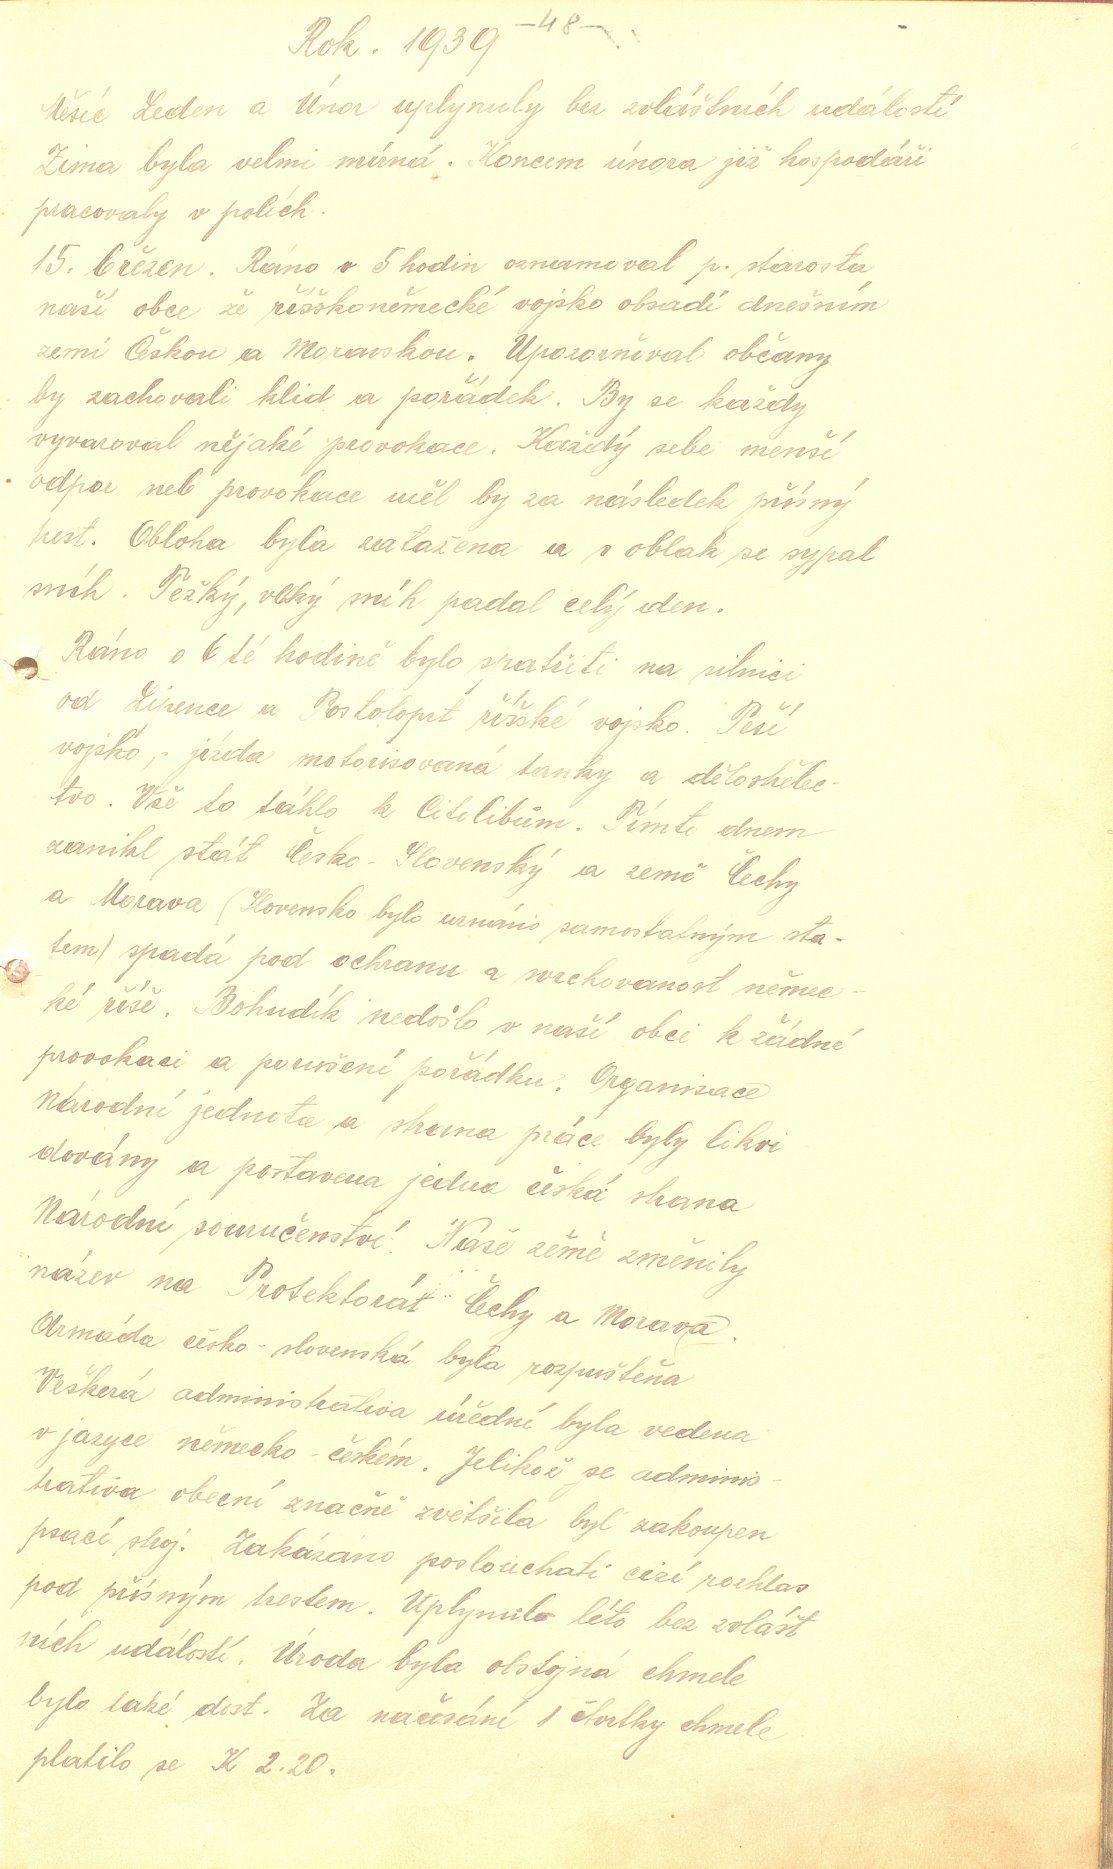 -48-
Rok. 1939
Měsíc Leden a Únor uplynuly bez zvláštních událostí
Zima byla velmi mírná. Koncem února již hospodáři
pracovaly v polích.
15. březen. Ráno v 5 hodin oznamoval p. starosta
naší obce že říšskoněmecké vojsko obsadí dnešním
zemi Českou a Moravskou. Upozorňoval občany
by zachovali klid a pořádek. By se každy
vyvaroval nějaké provokace. Každý sebe menší
odpor neb provokace měl by za následek přísný
trest. Obloha byla zatažena a s oblak se sypal
sníh. Těžký, vlký sníh padal celý den.
Ráno o 6 té hodině bylo spatřiti na silnici
od Ližence a Postoloprt říšské vojsko. Peší
vojsko, jízda motorisovaná tanky a dělostřelec-
tvo. Vše to táhlo k Citolibům. Tímto dnem
zanikl stát Česko-Slovenský a země Čechy
a Morava (Slovensko bylo uznáno samostatným stá-
tem) spadá pod ochranu a svrchovanost němec-
ké říše. Bohudík nedošlo v naší obci k žádné
provokaci a porušení pořádku. Organisace
Národní jednota a strana práce byly likvi
dovány a postavena jedna česká strana
Národní souručenství. Naše země změnily
název na Protektorát Čechy a Morava.
Armáda česko-slovenská byla rozpuštěna
Veškerá administrativa úřední byla vedena
v jazyce německo-českém. Jelikož se adminis-
trativa obecní značně zvětšila byl zakoupen
psací stroj. Zakázáno poslouchati cizí rozhlas
pod přísným trestem. Uplynulo léto bez zvlášt
ních událostí. Úroda byla obstojná chmele
bylo také dost. Za načesání 1 čtvrtky chmele
platilo se K 2.20.